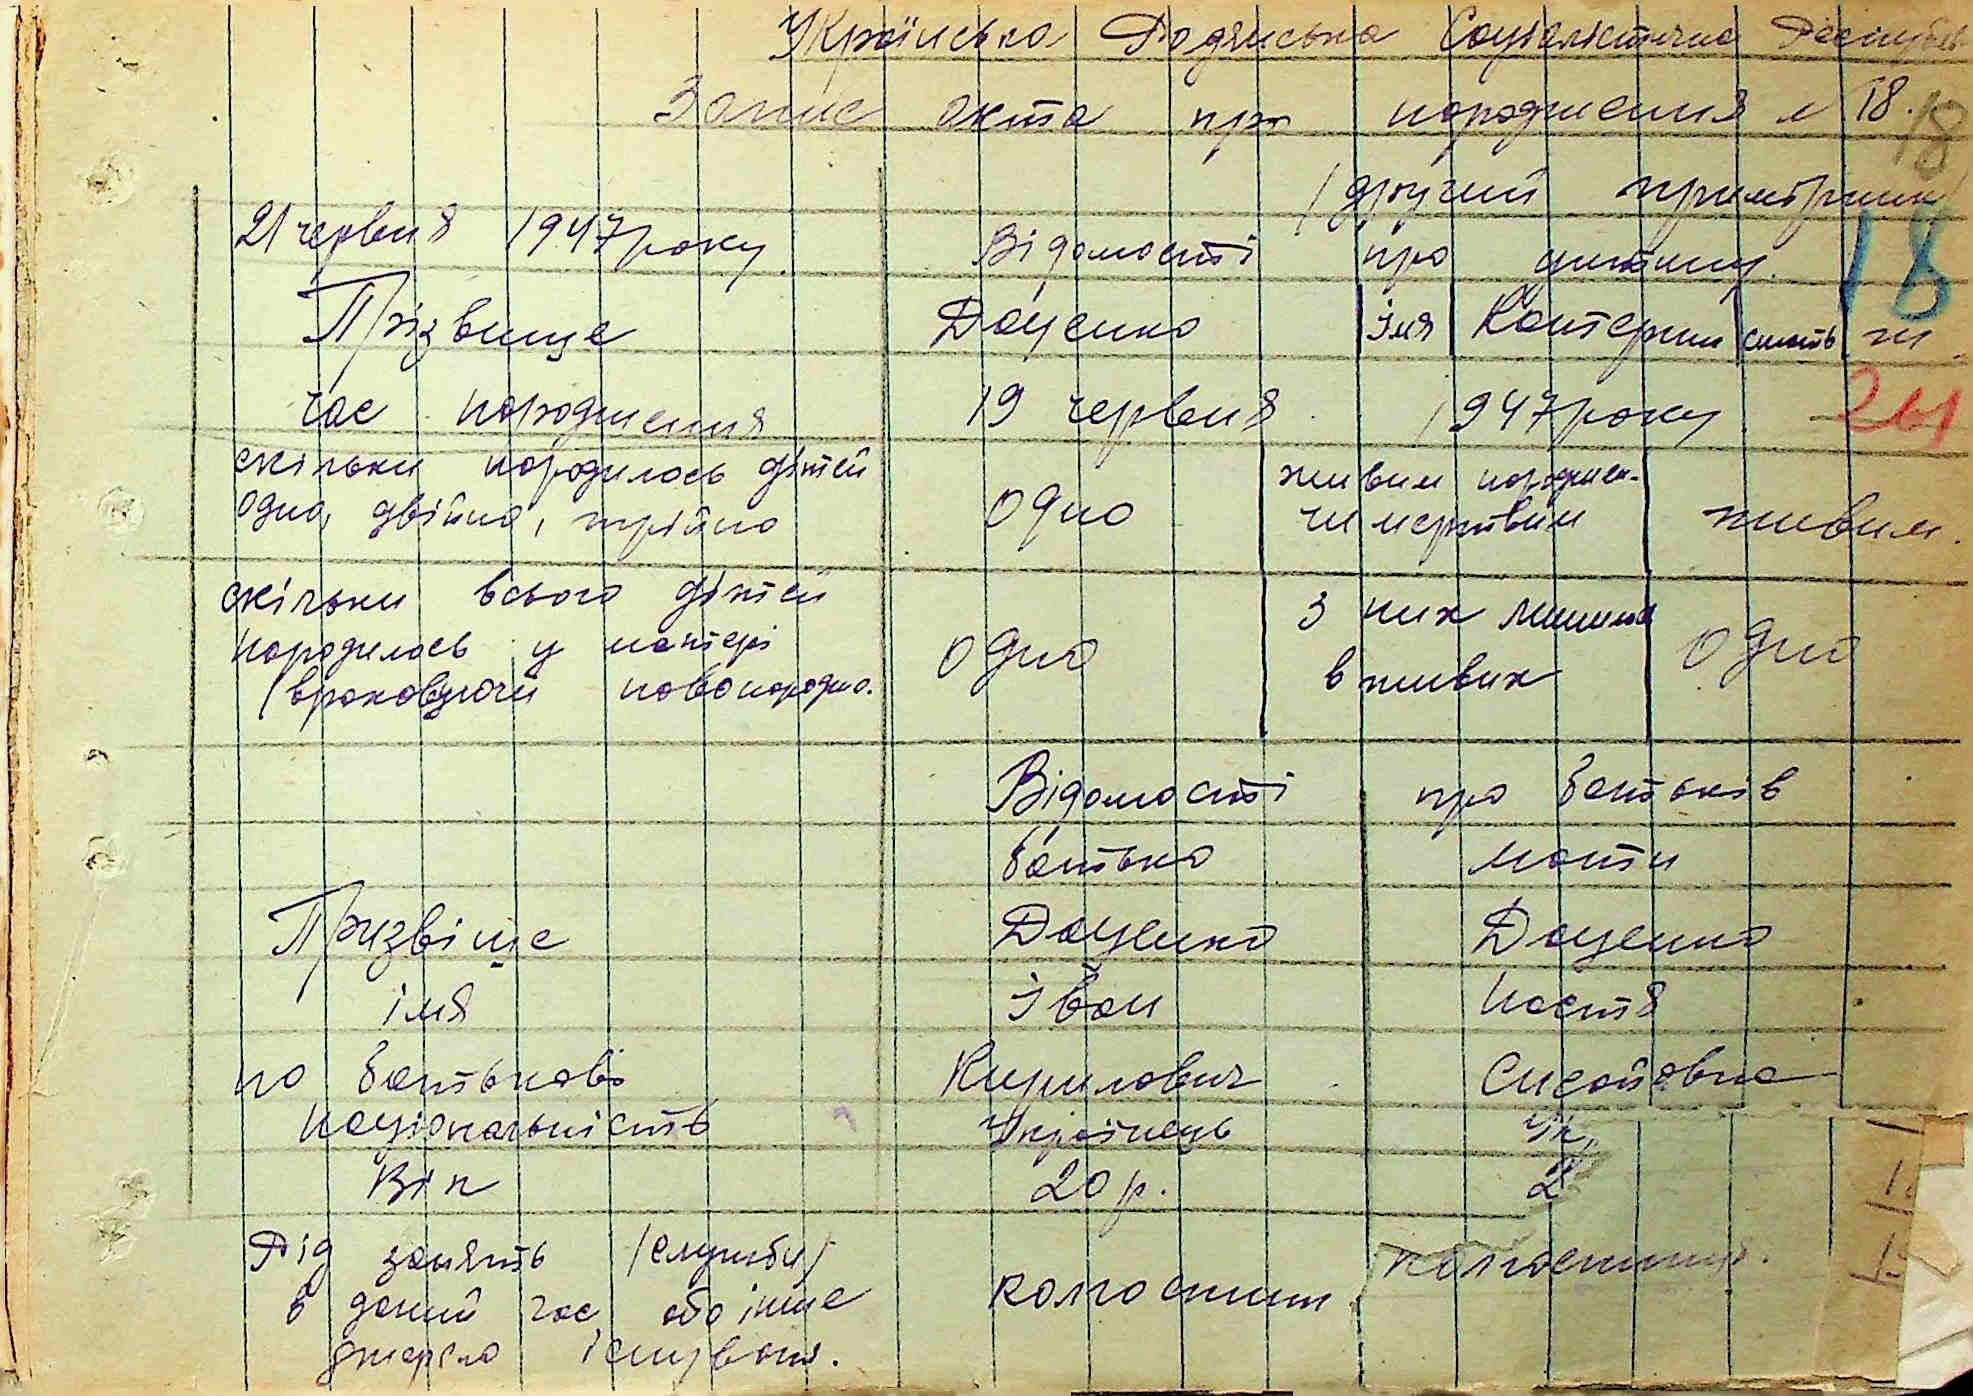 Українська Радянська Соціалістична Республ
Запис акта про народження № 18.
18
/другий примірник/
21 червня 1947 року
Відомості про дитину.
18
Прізвище Доценко імя Катерин стать ж
час народження 19 червня 1947 року
241
скільки народилось дітей
одна, двійна, трійна
одно
живим народжен.
чи мертвим
живим.
скільки всього дітей
народилось у матері
/враховуючи новонародж.
одно
З них лишил
в живих
одно
Відомості про батьків
батько мати
Призвіще Доценко Доценко
імя Іван Настя
по батькові Кирилович Сисоївна
національність Українець Ук
Вік 20 р. 2
Рід занять /служби/
в даний час або інше
джерело існування.
колгоспник
колгоспниця.